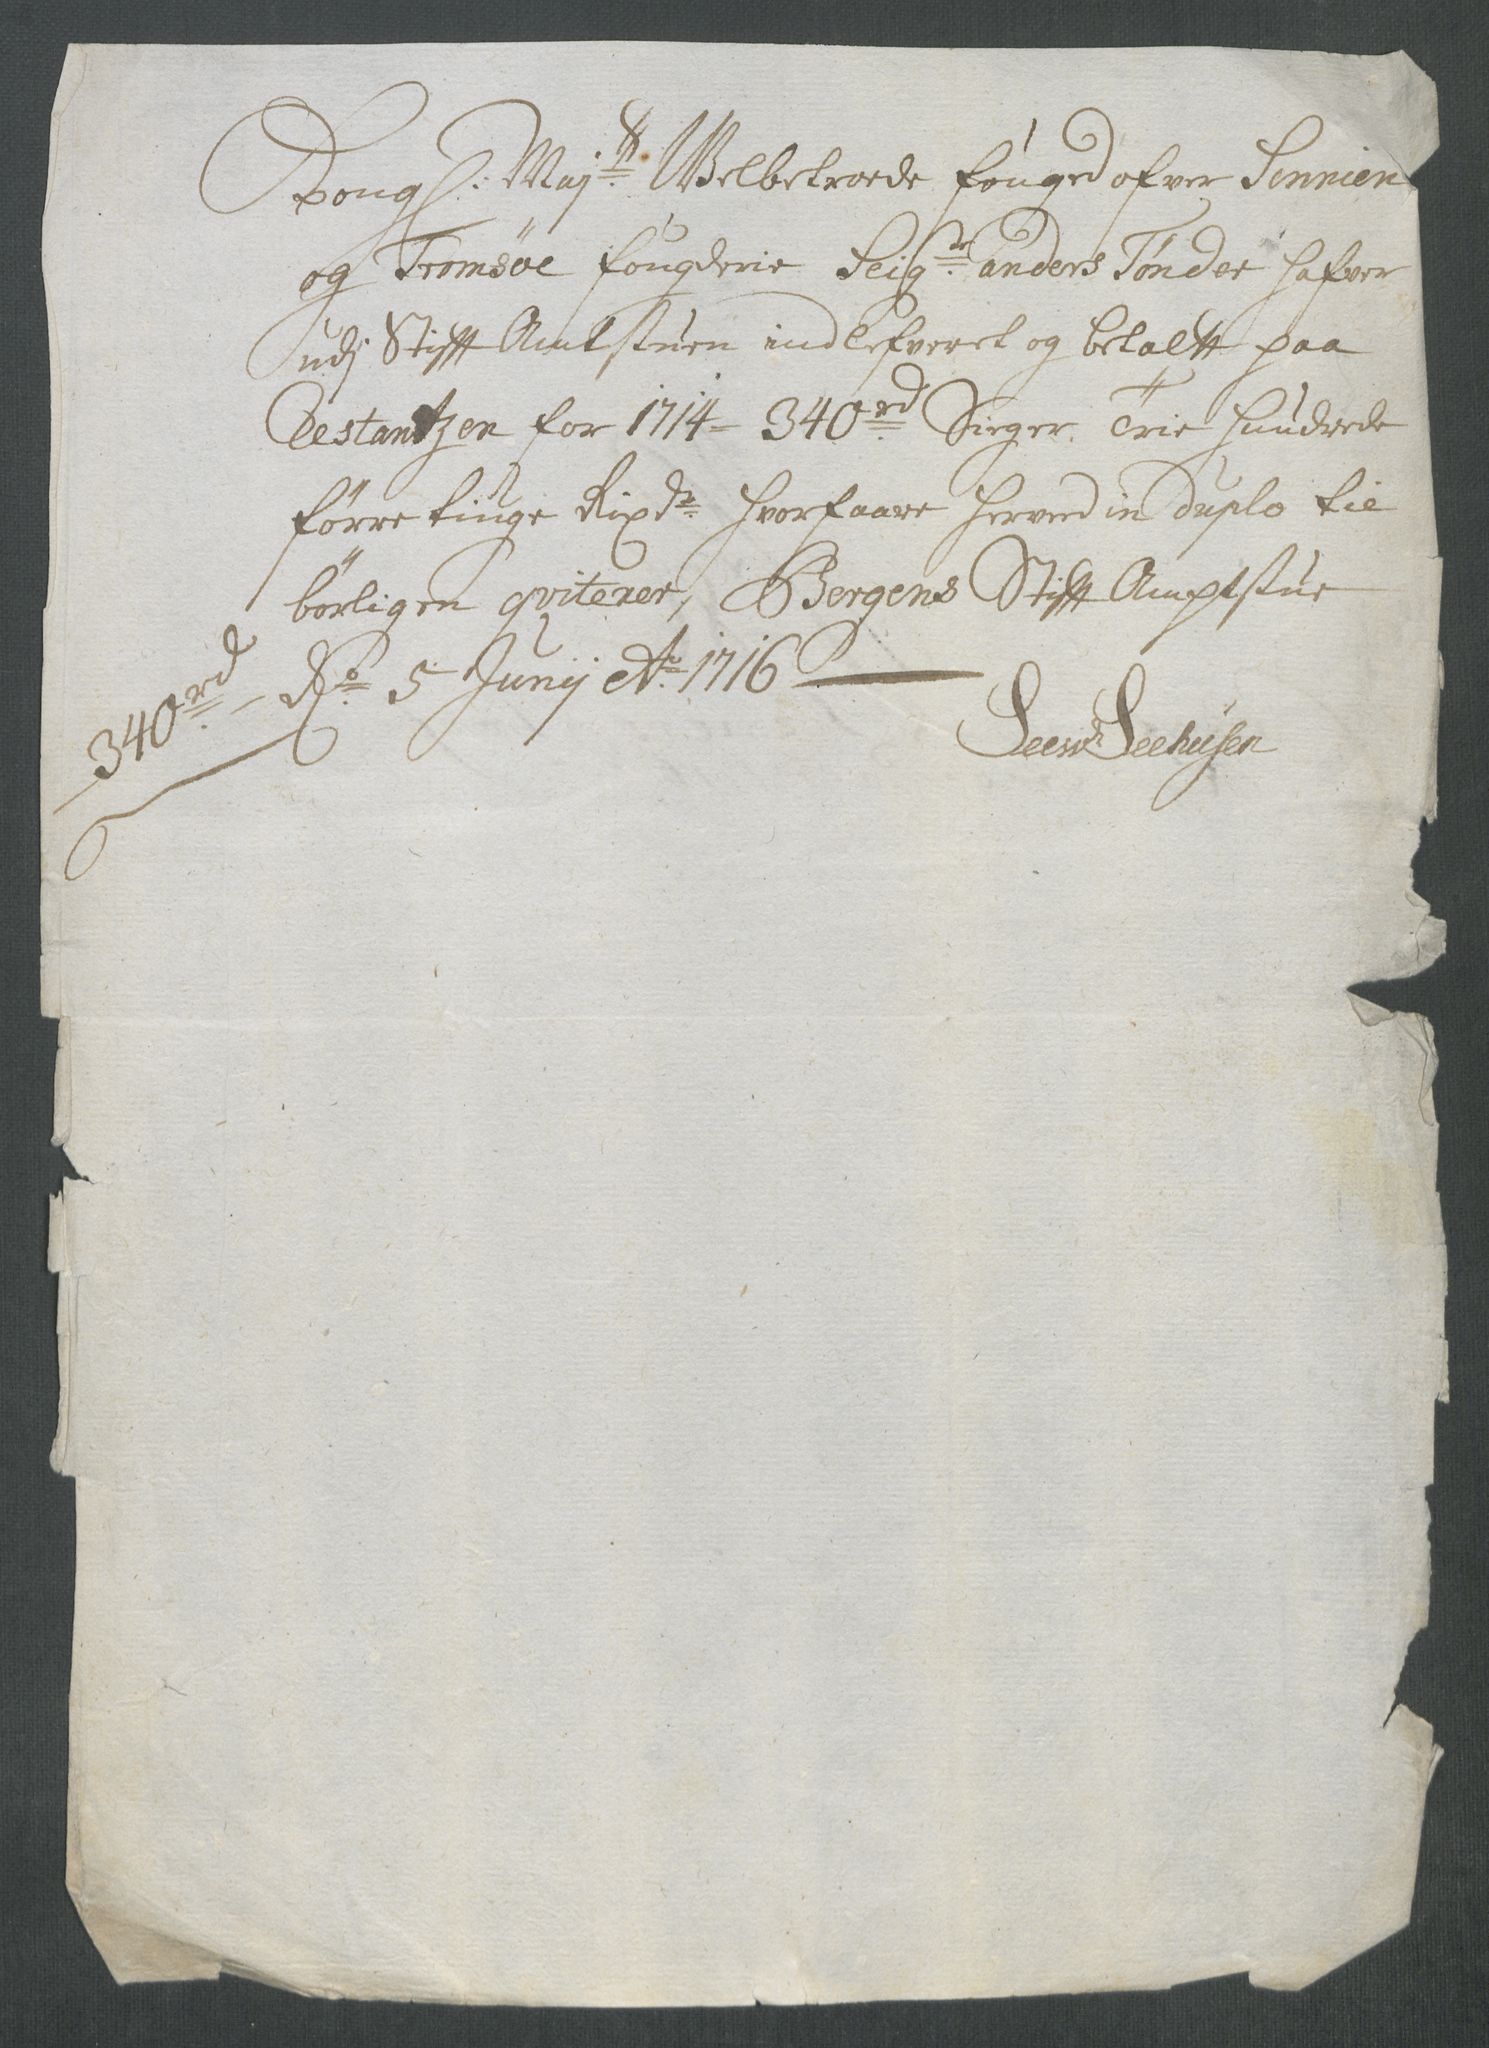 Kongl: Maj:tt Velbetroede fouged ofver Sennien
og Tromsöe fougderie Seig:r anders Tönder hafver
udj Stifft Amtstuen indlefveret og betaltt paa
Restantzen for 1714 = 340 rd Siger Trie hundrede
förretiuge Rixd:r hvorfaare herved in duplo til
börligen qviterer, Bergens Stifft Amptstue
340 rd – D: 5 Junij Ao: 1716
Seehusen